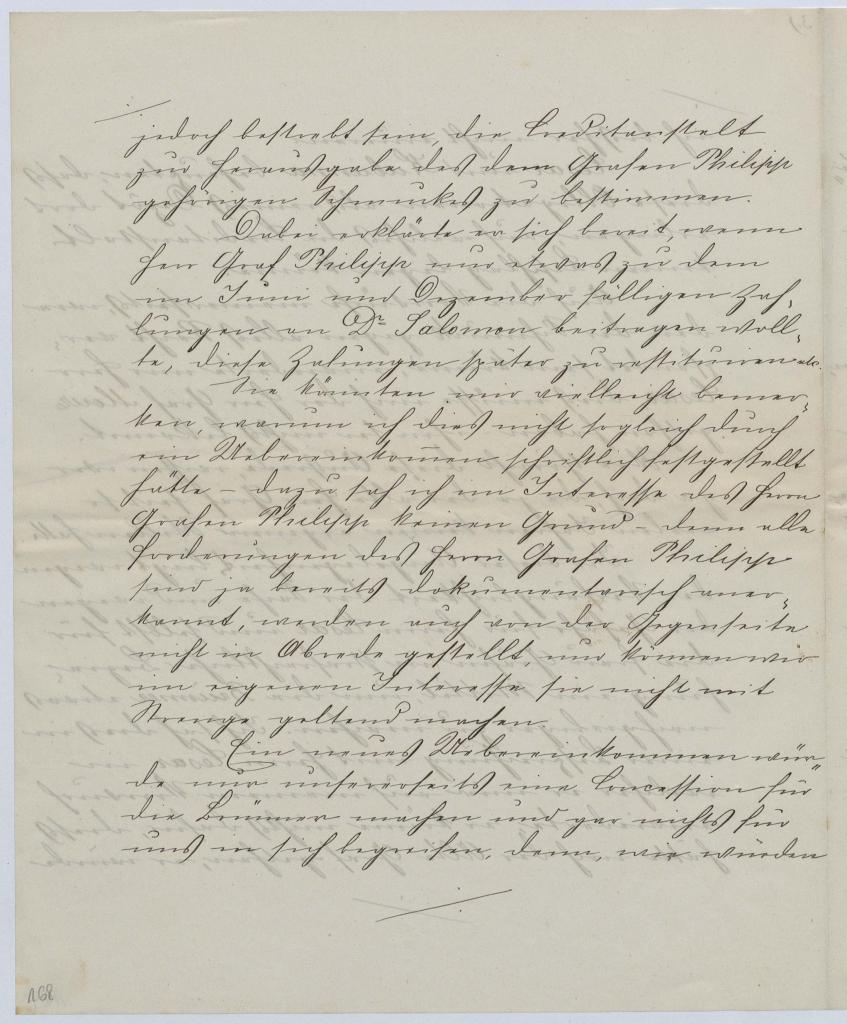 jedoch bestrebt sein, die Creditanstalt
zur Herausgabe des dem Grafen Philipp
gehörigen Schmuckes zu bestimmen.
Dabei erklärte er sich bereit, wenn
Herr Graf Philipp nur etwas zu dem
im Juni und Dezember fälligen Zah-
lungen an Dr. Salomon beitragen woll-
te, diese Zalungen später zu restituiren etc.
Sie könnten mir vielleicht bemer-
ken, warum ich dies nicht sogleich durch
ein Uebereinkom̄en schriftlich festgestellt
hätte – dazu sah ich im Interesse des Herrn
Grafen Philipp keinen Grund – denn alle
Forderungen des Herrn Grafen Philipp
sind ja bereits dokumentarisch aner-
kannt, werden auch von der Gegenseite
nicht in Abrede gestellt, nur können wir
im eigenen Interesse sie nicht mit
Strenge geltend machen.
Ein neues Uebereinkommen wür-
de nur unsererseits eine Concession für
die Brünner machen und gar nichts für
uns in sich begreifen, denn, wir würden
168